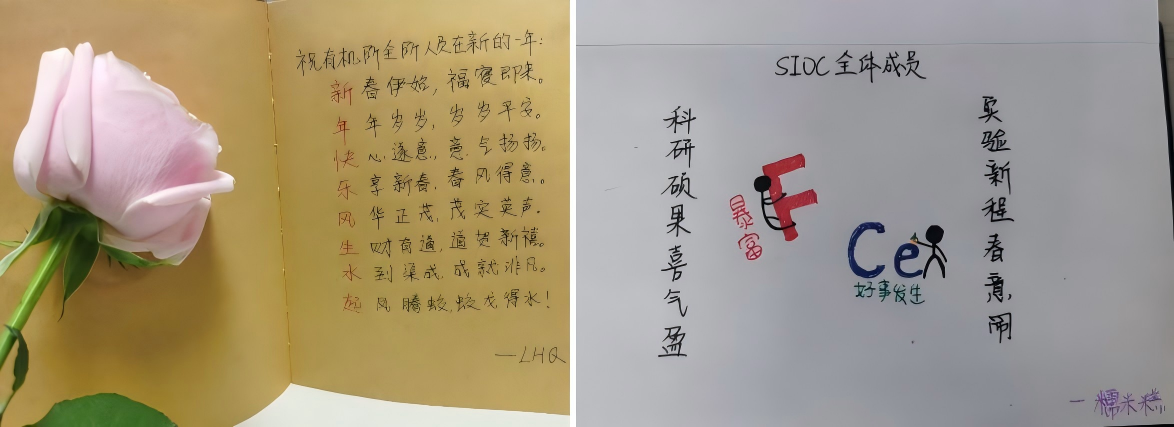 祝有机所全所人员在新的一年:
新春伊始,福即来。
年年岁岁,岁岁平安。
快心遂意,意气扬扬。
乐享新春,春风得意。
风华正茂,茂实英声。
生财有道,道贺新禧。
水到渠成,成就非凡。
起凤腾蛟,蛟龙得水!
—LHQ
SIOC全体成员
实验新程春意闹
科研硕果喜气盈
F
暴富
Ce
好事发生
—糯米糕